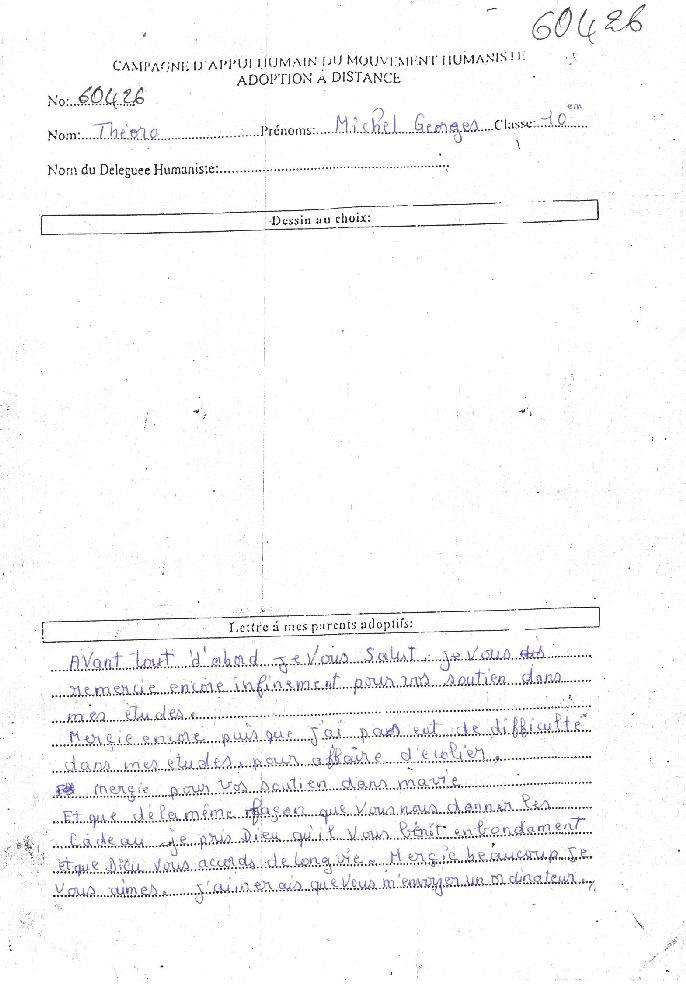 60426
CAMPAGNE D'APPUI HUMAIN DU MOUVEMENT HUMANISTE
ADOPTION À DISTANCE
No: 60426
Nom: Théoro Prénoms: Michel Georges Classe: 10 em
Nom du Deleguee Humaniste:
Dessin au choix:
Lettre à mes parents adoptifs:
Avant tout d'abord je vous salut. je vous dis
remercie encore infinement pour vos soutien dans
mes études.
Merçie encore puis que j'ai pas eut de difficulté
dans mes etudes. pour affaire d'ecolier.
merçie pour vos soutien dans mavie
Et que déla même façon que vous nous donner les
Câdeau je pris Dieu qu'il vous bénit enbondament
et que Dieu vous accords de longvie. Merçie beaucoup je
vous aimes. J'aimerais que vous m'envoyer un ordinateur.